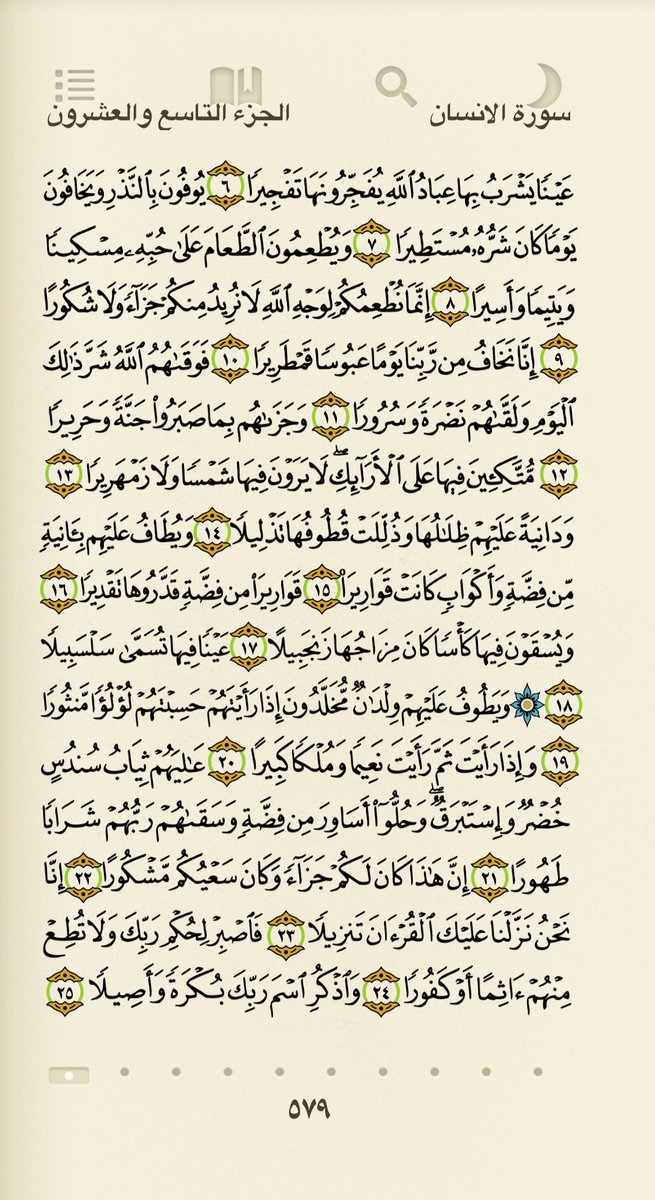 سورة الانسان الجزء التاسع والعشرون
عَيْنًا يَشْرَبُ بِهَا عِبَادُ ٱللَّهِ يُفَجِّرُونَهَا تَفْجِيرًا ٦ يُوفُونَ بِٱلنَّذْرِ وَيَخَافُونَ
يَوْمًا كَانَ شَرُّهُۥ مُسْتَطِيرًا ٧ وَيُطْعِمُونَ ٱلطَّعَامَ عَلَىٰ حُبِّهِۦ مِسْكِينًا
وَيَتِيمًا وَأَسِيرًا ٨ إِنَّمَا نُطْعِمُكُمْ لِوَجْهِ ٱللَّهِ لَا نُرِيدُ مِنكُمْ جَزَآءً وَلَا شُكُورًا
٩ إِنَّا نَخَافُ مِن رَّبِّنَا يَوْمًا عَبُوسًا قَمْطَرِيرًا ١٠ فَوَقَىٰهُمُ ٱللَّهُ شَرَّ ذَٰلِكَ
ٱلْيَوْمِ وَلَقَّىٰهُمْ نَضْرَةً وَسُرُورًا ١١ وَجَزَىٰهُم بِمَا صَبَرُوا۟ جَنَّةً وَحَرِيرًا
١٢ مُّتَّكِـِٔينَ فِيهَا عَلَى ٱلْأَرَآئِكِ ۖ لَا يَرَوْنَ فِيهَا شَمْسًا وَلَا زَمْهَرِيرًا ١٣
وَدَانِيَةً عَلَيْهِمْ ظِلَـٰلُهَا وَذُلِّلَتْ قُطُوفُهَا تَذْلِيلًا ١٤ وَيُطَافُ عَلَيْهِم بِـَٔانِيَةٍ
مِّن فِضَّةٍ وَأَكْوَابٍ كَانَتْ قَوَارِيرَا۠ ١٥ قَوَارِيرَا۟ مِن فِضَّةٍ قَدَّرُوهَا تَقْدِيرًا ١٦
وَيُسْقَوْنَ فِيهَا كَأْسًا كَانَ مِزَاجُهَا زَنجَبِيلًا ١٧ عَيْنًا فِيهَا تُسَمَّىٰ سَلْسَبِيلًا
١٨ وَيَطُوفُ عَلَيْهِمْ وِلْدَٰنٌ مُّخَلَّدُونَ إِذَا رَأَيْتَهُمْ حَسِبْتَهُمْ لُؤْلُؤًا مَّنثُورًا
١٩ وَإِذَا رَأَيْتَ ثَمَّ رَأَيْتَ نَعِيمًا وَمُلْكًا كَبِيرًا ٢٠ عَـٰلِيَهُمْ ثِيَابُ سُندُسٍ
خُضْرٌ وَإِسْتَبْرَقٌ ۖ وَحُلُّوٓا۟ أَسَاوِرَ مِن فِضَّةٍ وَسَقَىٰهُمْ رَبُّهُمْ شَرَابًا
طَهُورًا ٢١ إِنَّ هَـٰذَا كَانَ لَكُمْ جَزَآءً وَكَانَ سَعْيُكُم مَّشْكُورًا ٢٢ إِنَّا
نَحْنُ نَزَّلْنَا عَلَيْكَ ٱلْقُرْءَانَ تَنزِيلًا ٢٣ فَٱصْبِرْ لِحُكْمِ رَبِّكَ وَلَا تُطِعْ
مِنْهُمْ ءَاثِمًا أَوْ كَفُورًا ٢٤ وَٱذْكُرِ ٱسْمَ رَبِّكَ بُكْرَةً وَأَصِيلًا ٢٥
٥٧٩